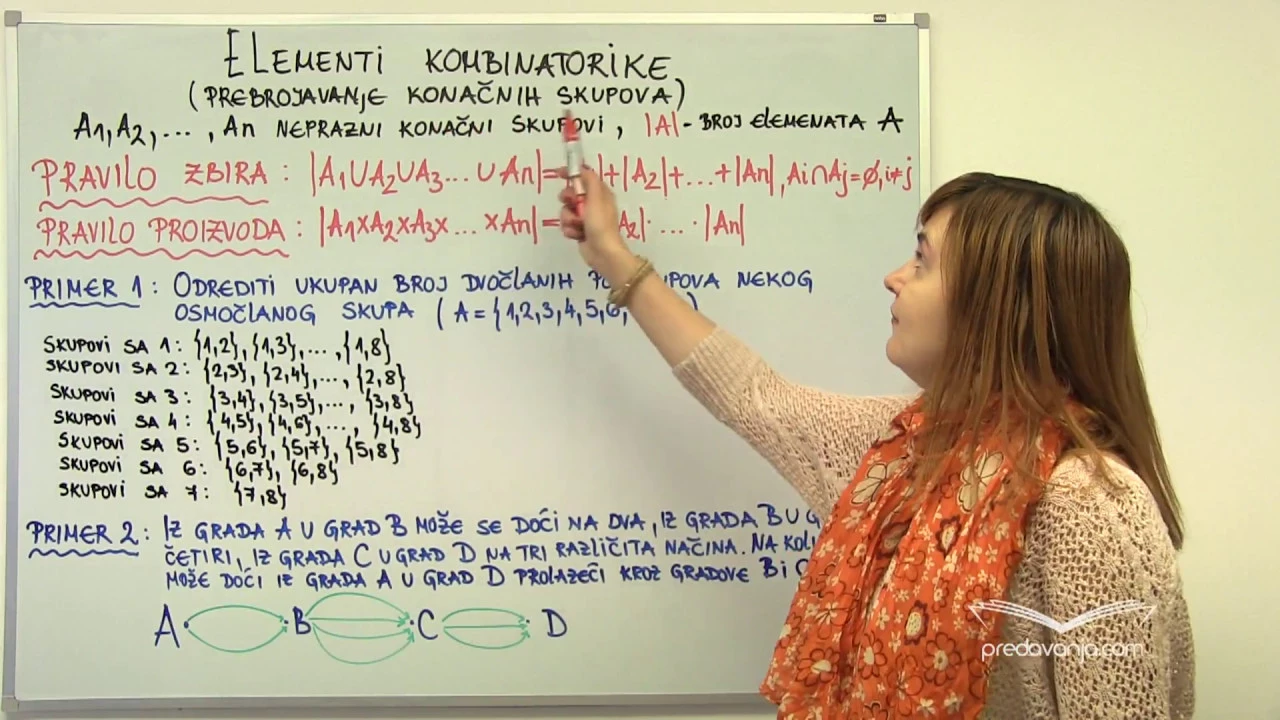 ELEMENTI KOMBINATORIKE
(PREBROJAVANJE KONAČNIH SKUPOVA)
A1, A2, ... , An NEPRAZNI KONAČNI SKUPOVI, |A| - BROJ ELEMENATA A
PRAVILO ZBIRA : |A1∪A2∪A3...∪An|= |+|A2|+...+|An|, Ai∩Aj=∅, i≠j
PRAVILO PROIZVODA : |A1×A2×A3×...×An|= A2|·...·|An|
PRIMER 1 : ODREDITI UKUPAN BROJ DVOČLANIH NEKOG
OSMOČLANOG SKUPA (A={1,2,3,4,5,6, )
SKUPOVI SA 1: {1,2}, {1,3}, ..., {1,8}
SKUPOVI SA 2: {2,3}, {2,4}, ..., {2,8}
SKUPOVI SA 3: {3,4}, {3,5}, ..., {3,8}
SKUPOVI SA 4: {4,5}, {4,6}, ..., {4,8}
SKUPOVI SA 5: {5,6}, {5,7}, {5,8}
SKUPOVI SA 6: {6,7}, {6,8}
SKUPOVI SA 7: {7,8}
PRIMER 2 : IZ GRADA A U GRAD B MOŽE SE DOĆI NA DVA, IZ GRADA B U
ČETIRI, IZ GRADA C U GRAD D NA TRI RAZLIČITA NAČINA. NA
MOŽE DOĆI IZ GRADA A U GRAD D PROLAZEĆI KROZ GRADOVE B I
A B C D
predavanja.com